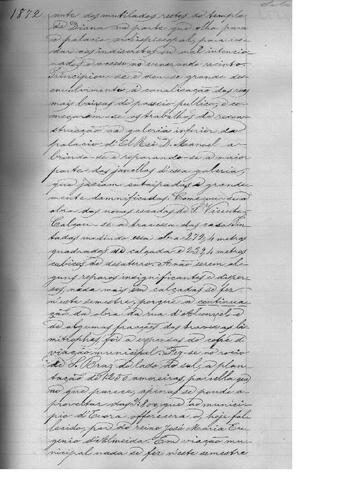 1872
nute dos mutilados restos do templo
de Diana na parte que olha para
o palacio archiepiscopal, para ve-
dar aos indiscretos ou mal intencio-
nados o accesso no venerando recinto.
Principiou-se e deu-se grande des-
envolvimento á canalisação das ruas
mais baixas do passeio publico, e co-
meçaram-se os trabalhos de recon-
strucção na galeria inferior do
palacio d'El-Rei D. Manoel a-
brindo-se e reparando-se a maior
parte das janellas d'essa galeria,
que jaziam entaipadas e grande-
mente damnificadas. Começou-se a
obra das novas escadas de S. Vicente.
Calçou-se a travessa das Casas Pin-
tadas medindo essa obra 279,4 metros
quadrados de calçada e 239,4 metros
cubicos de desaterro. A não serem al-
guns reparos insignificantes e disper-
sos, nada mais em calçadas se fez
n'este semestre, porque a continua-
ção da obra da rua d'Alconxel e
de algumas fracções das travessas li-
mitrophes foi a expensas do cofre de
viação municipal. Fez-se no rocio
de S. Braz do lado do sul, a plan-
tação de amoreiras, parcella que
no que parece, apenas se ponde a-
proveitar das que ao munici-
pio d'Evora offerecera o, hoje fal-
lecido, par do reino José Maria Eu-
genio d'Almeida. Em viação mu-
nicipal nada se fez n'este semestre